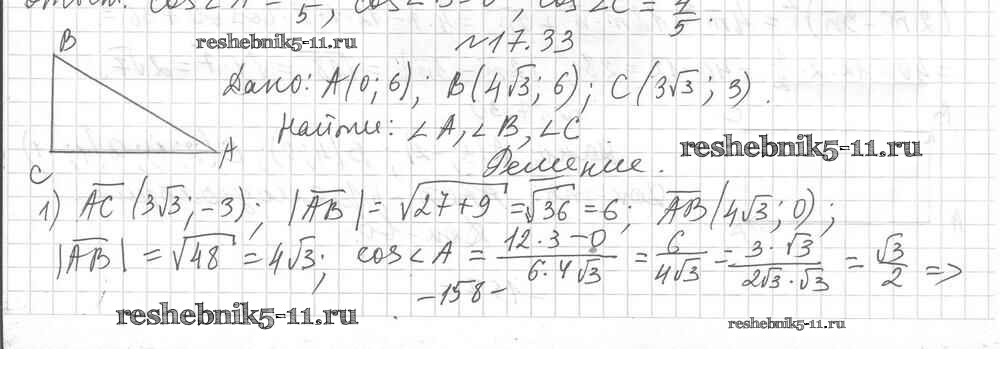 cos∠A = 4/5, cos∠B = 0, cos∠C = 4/5.
reshebnik5-11.ru
№17.33
B
Дано: A(0; 6); B(4√3; 6); C(3√3; 3).
Найти: ∠A, ∠B, ∠C
A
reshebnik5-11.ru
C
Решение.
1) AC (3√3; -3); |AB| = √27+9 = √36 = 6; AB (4√3; 0);
|AB| = √48 = 4√3; cos∠A = 12·3-0/6·4√3 = 6/4√3 = 3·√3/2√3·√3 = √3/2 =>
-158-
reshebnik5-11.ru
reshebnik5-11.ru